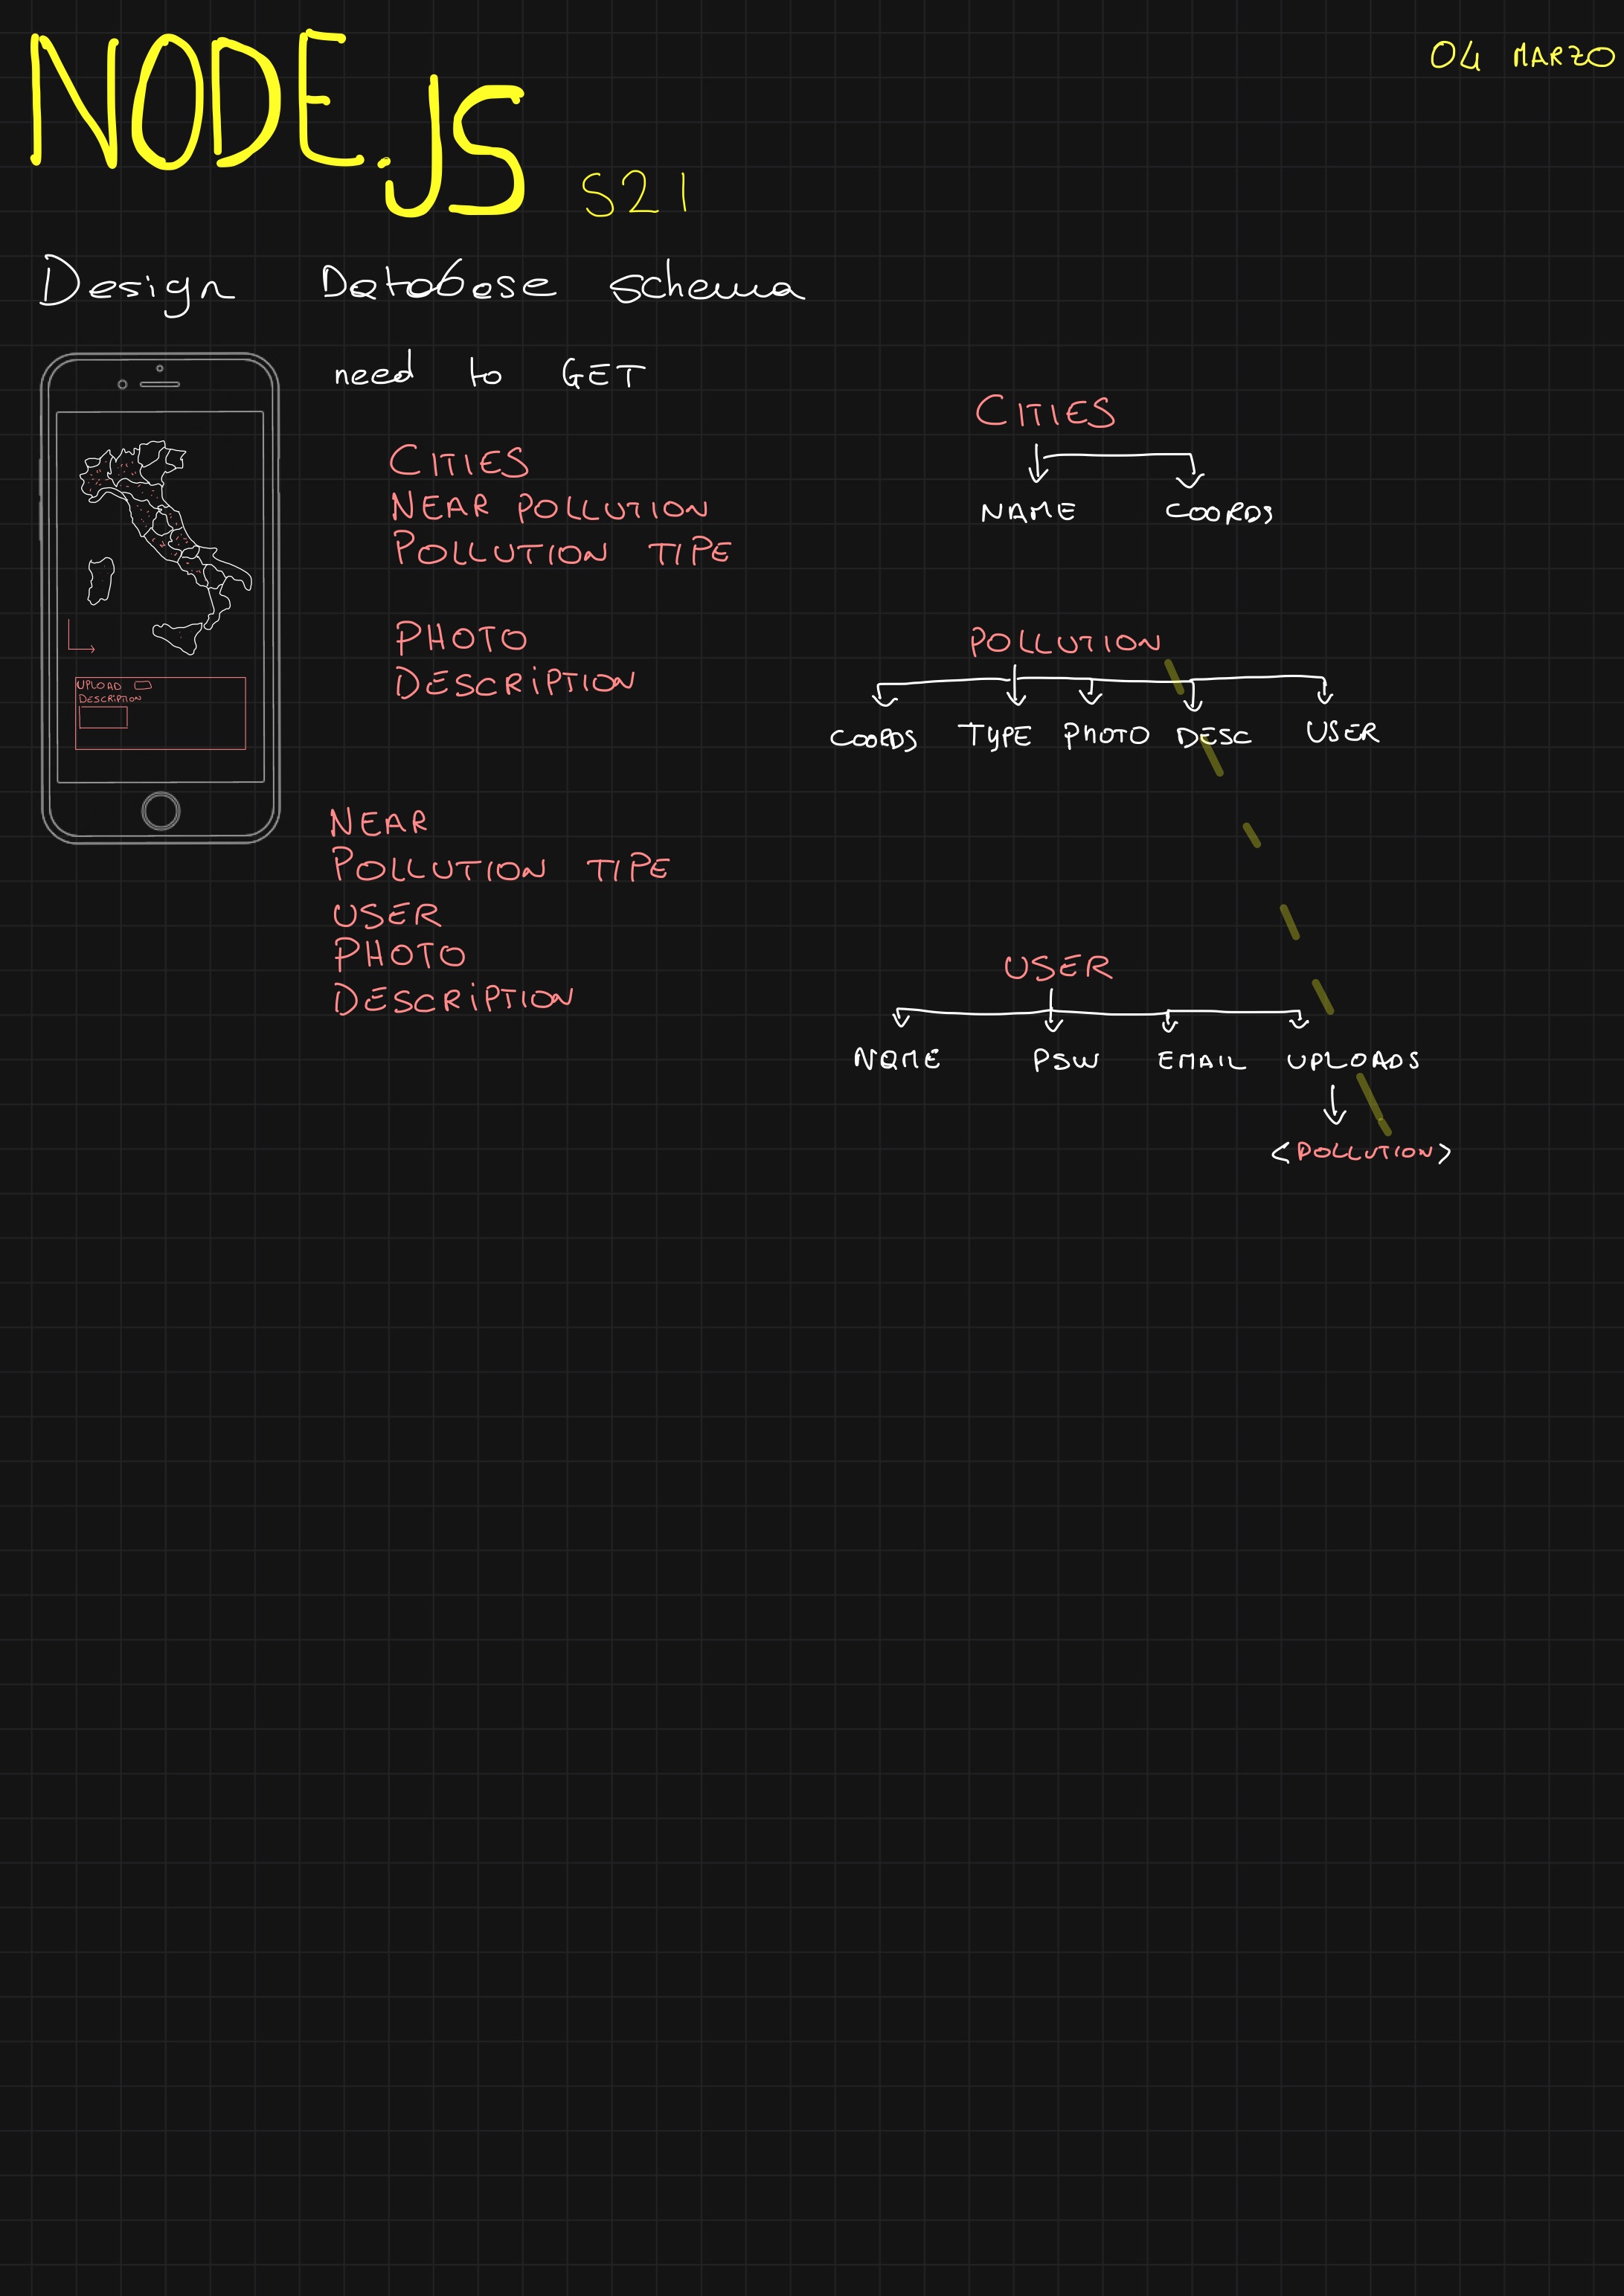 NODE.JS S21
04 MARZO
Design Database schema
need to GET
CITIES
NEAR POLLUTION
POLLUTION TIPE
PHOTO
DESCRIPTION
UPLOAD
DESCRIPTION
NEAR
POLLUTION TIPE
USER
PHOTO
DESCRIPTION
CITIES
NAME COORDS
POLLUTION
COORDS TYPE PHOTO DESC USER
USER
NAME PSW EMAIL UPLOADS
<POLLUTION>